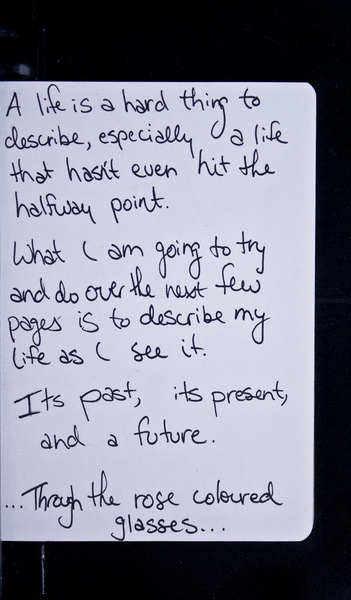 A life is a hard thing to
describe, especially a life
that hasn't even hit the
halfway point.
What I am going to try
and do over the next few
pages is to describe my
life as I see it.
Its past, its present,
and a future.
...Through the rose coloured
glasses...